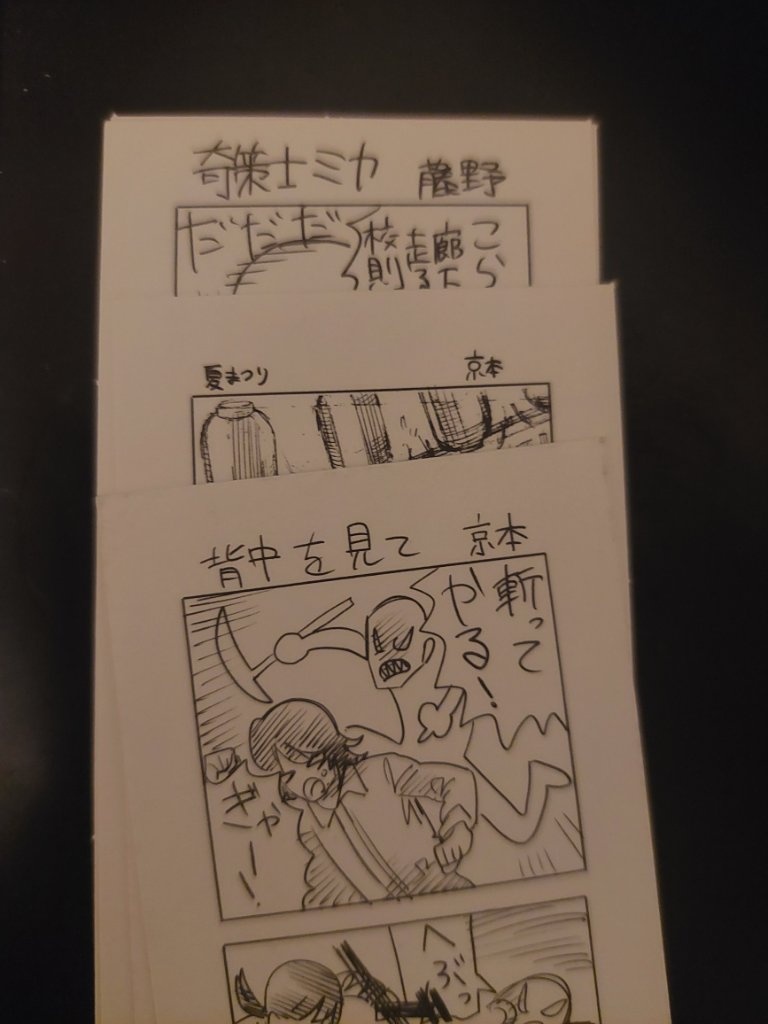 奇策士ミカ 藤野
だだだ
こら
廊下
走る
校則
夏まつり 京本
背中を見て 京本
斬って
やる!
ぎゃー!!
へぶっ